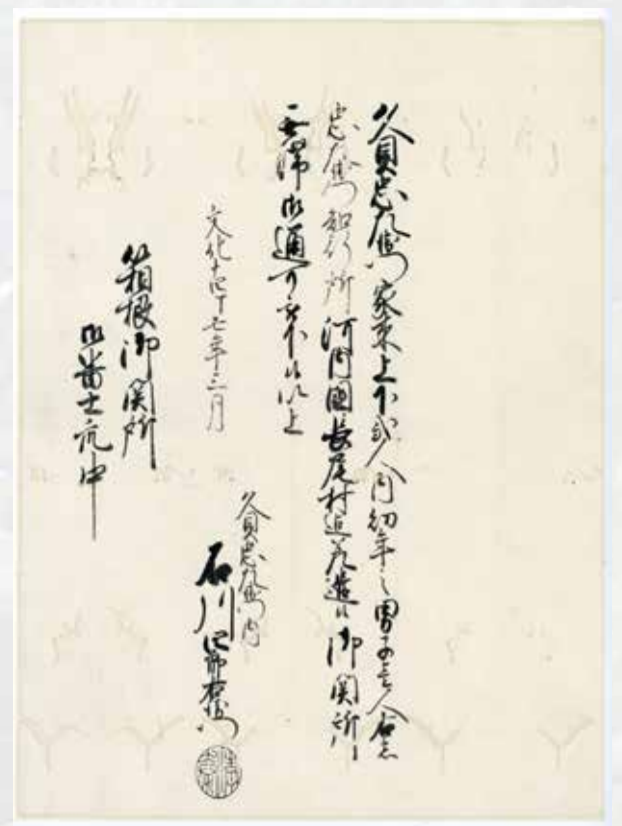 久貝忠左衛門家来上下弐人内幼年之男子壱人右者
忠左衛門知行所河内國長尾村迄差遣候御関所
無滞御通可被下候以上
文化十四丁丑年三月
久貝忠左衛門内
石川
箱根御関所
御番士衆中